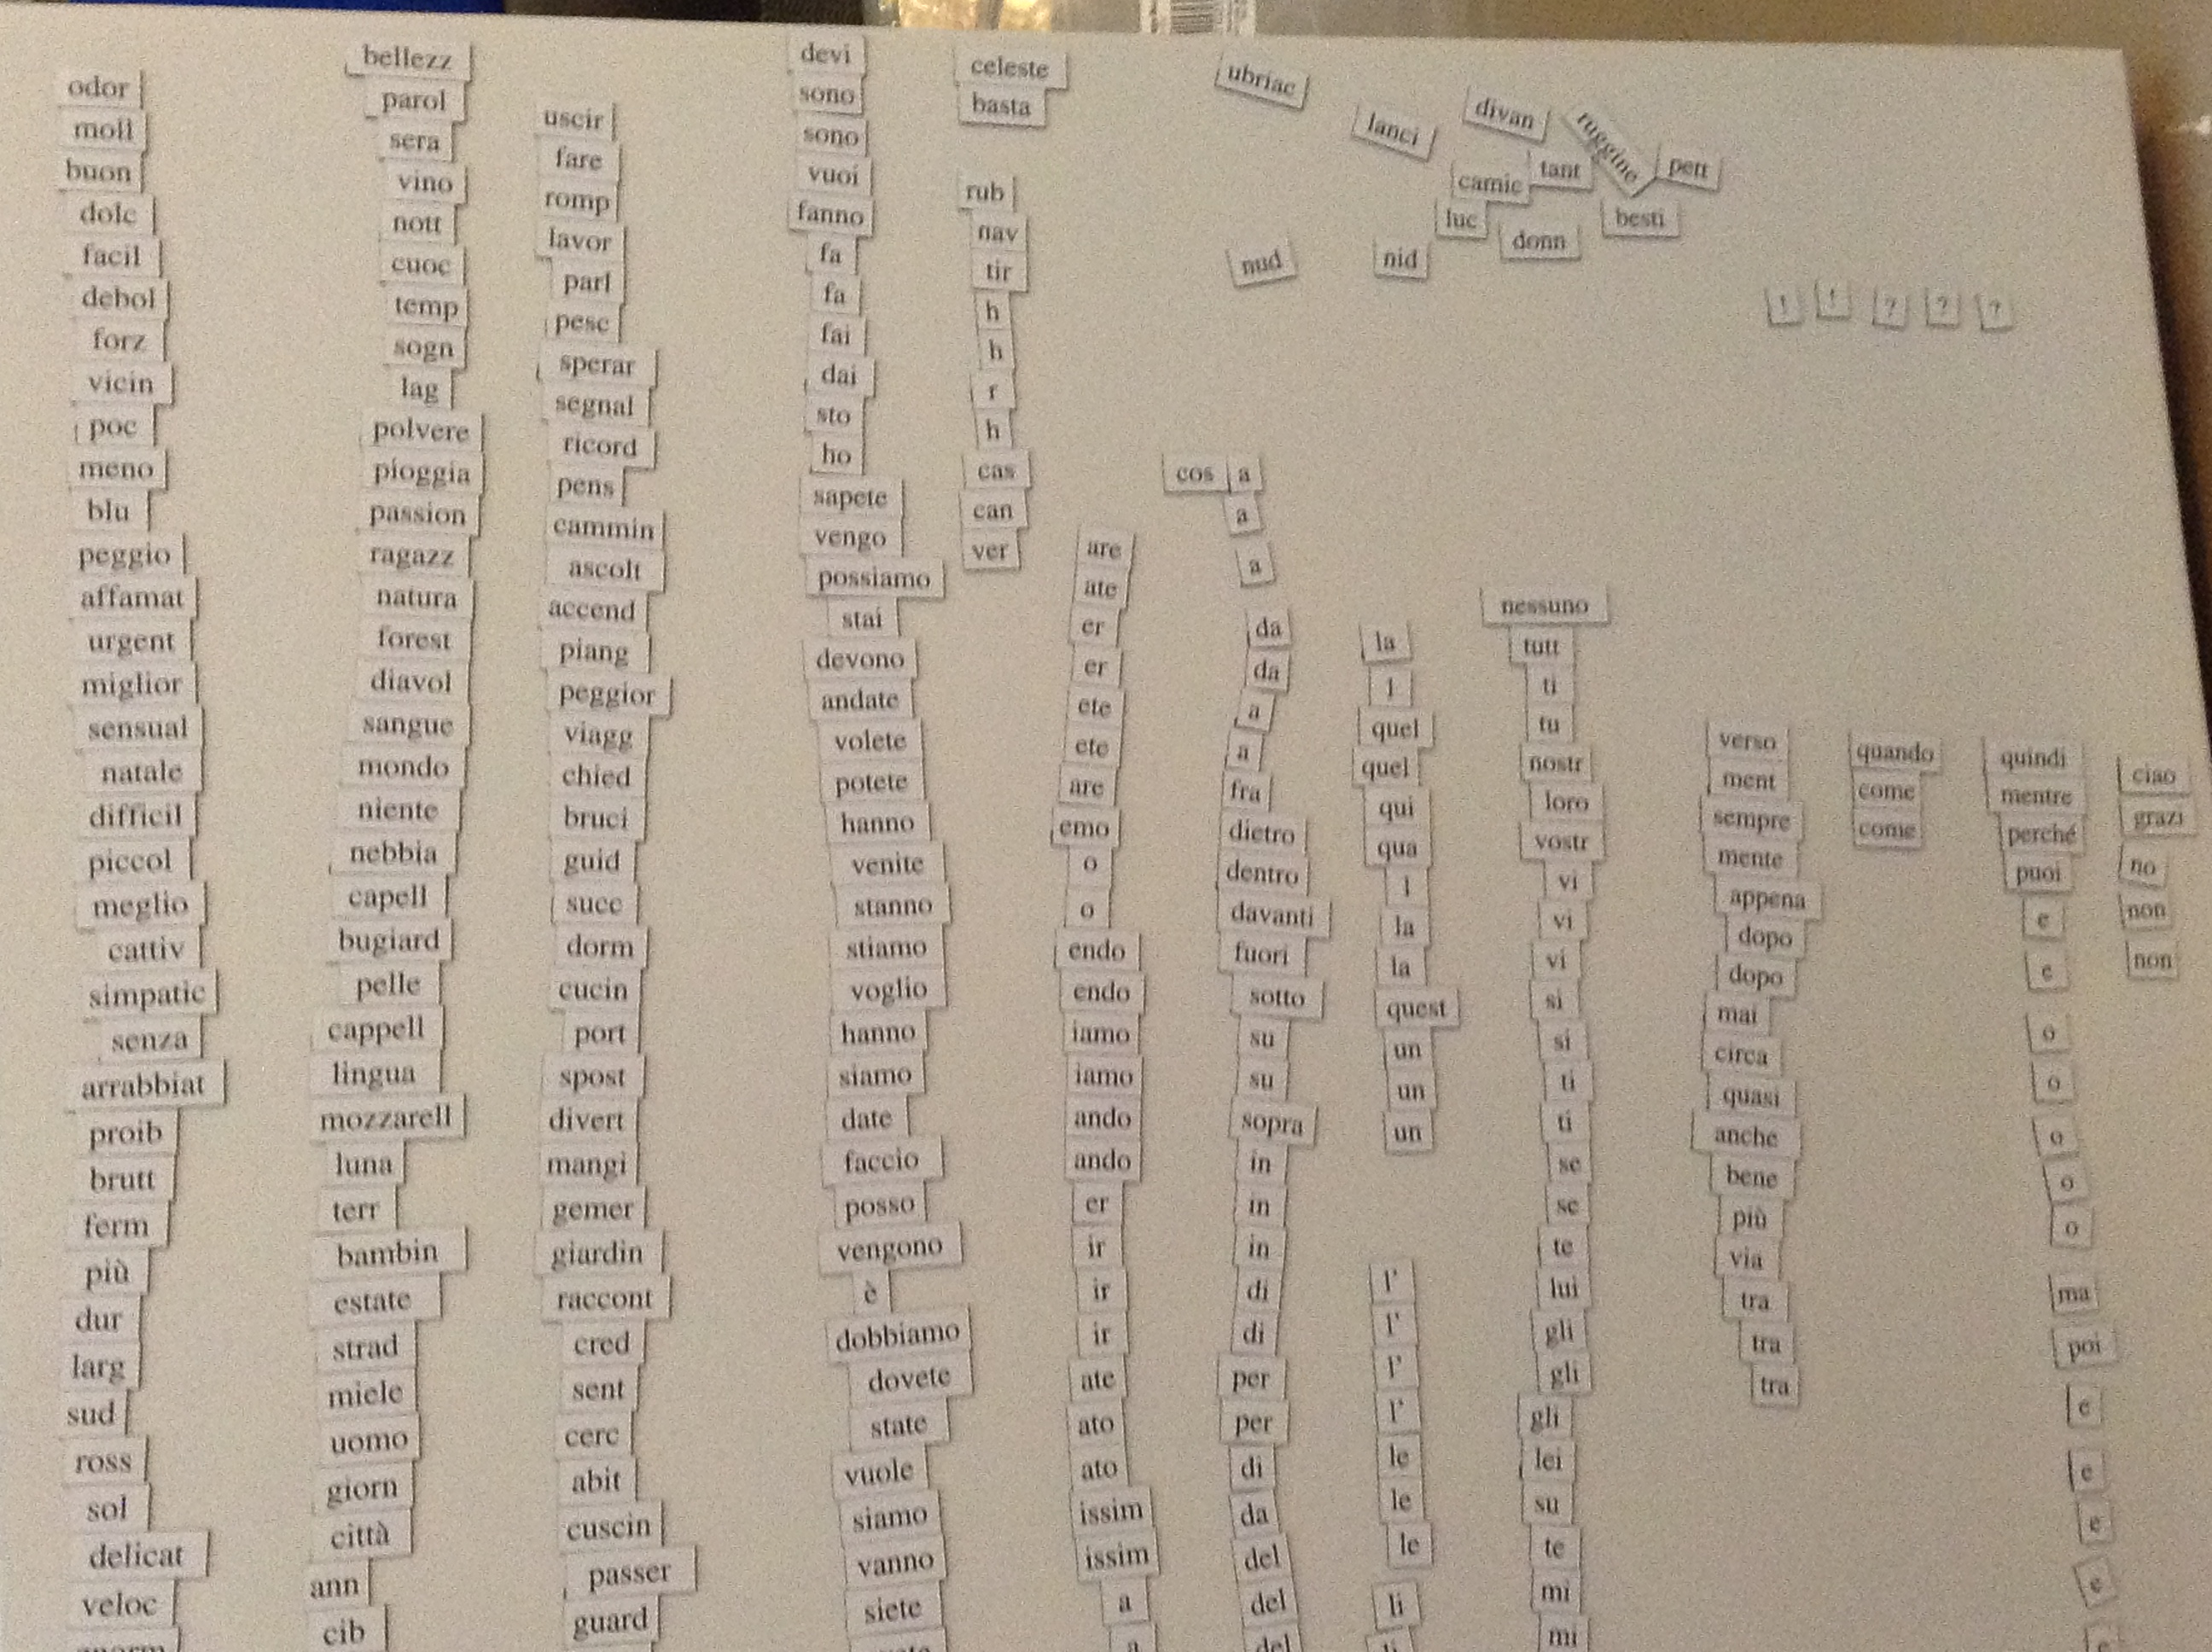 odor
moll
buon
dolc
facil
debol
forz
vicin
poc
meno
blu
peggio
affamat
urgent
miglior
sensual
natale
difficil
piccol
meglio
cattiv
simpatic
senza
arrabbiat
proib
brutt
ferm
più
dur
larg
sud
ross
sol
delicat
veloc
bellezz
parol
sera
vino
nott
cuoc
temp
sogn
lag
polvere
pioggia
passion
ragazz
natura
forest
diavol
sangue
mondo
niente
nebbia
capell
bugiard
pelle
cappell
lingua
mozzarell
luna
terr
bambin
estate
strad
miele
uomo
giorn
città
ann
cib
uscir
fare
romp
lavor
parl
pesc
sperar
segnal
ricord
pens
cammin
ascolt
accend
piang
peggior
viagg
chied
bruci
guid
succ
dorm
cucin
port
spost
divert
mangi
gemer
giardin
raccont
cred
sent
cerc
abit
cuscin
passer
guard
devi
sono
sono
vuoi
fanno
fa
fa
fai
dai
sto
ho
sapete
vengo
possiamo
stai
devono
andate
volete
potete
hanno
venite
stanno
stiamo
voglio
hanno
siamo
date
faccio
posso
vengono
è
dobbiamo
dovete
state
vuole
siamo
vanno
siete
celeste
basta
rub
nav
tir
h
h
r
h
cas
can
ver
are
ate
er
er
ete
ete
are
emo
o
o
endo
endo
iamo
iamo
ando
ando
er
ir
ir
ir
ate
ato
ato
issim
issim
a
a
ubriac
nud
cos a
a
a
da
da
a
a
fra
dietro
dentro
davanti
fuori
sotto
su
su
sopra
in
in
in
di
di
per
per
di
da
del
del
del
lanci
divan
ruggine
tant
pett
camic
luc
besti
donn
nid
! ! ? ? ?
la
l
quel
quel
qui
qua
l
la
la
quest
un
un
un
l'
l'
l'
l'
le
le
le
li
nessuno
tutt
ti
tu
nostr
loro
vostr
vi
vi
vi
si
si
ti
ti
se
se
te
lui
gli
gli
gli
lei
su
te
mi
mi
verso
ment
sempre
mente
appena
dopo
dopo
mai
circa
quasi
anche
bene
più
via
tra
tra
tra
quando
come
come
quindi
mentre
perché
puoi
e
e
o
o
o
o
o
ma
poi
e
e
e
e
ciao
grazi
no
non
non